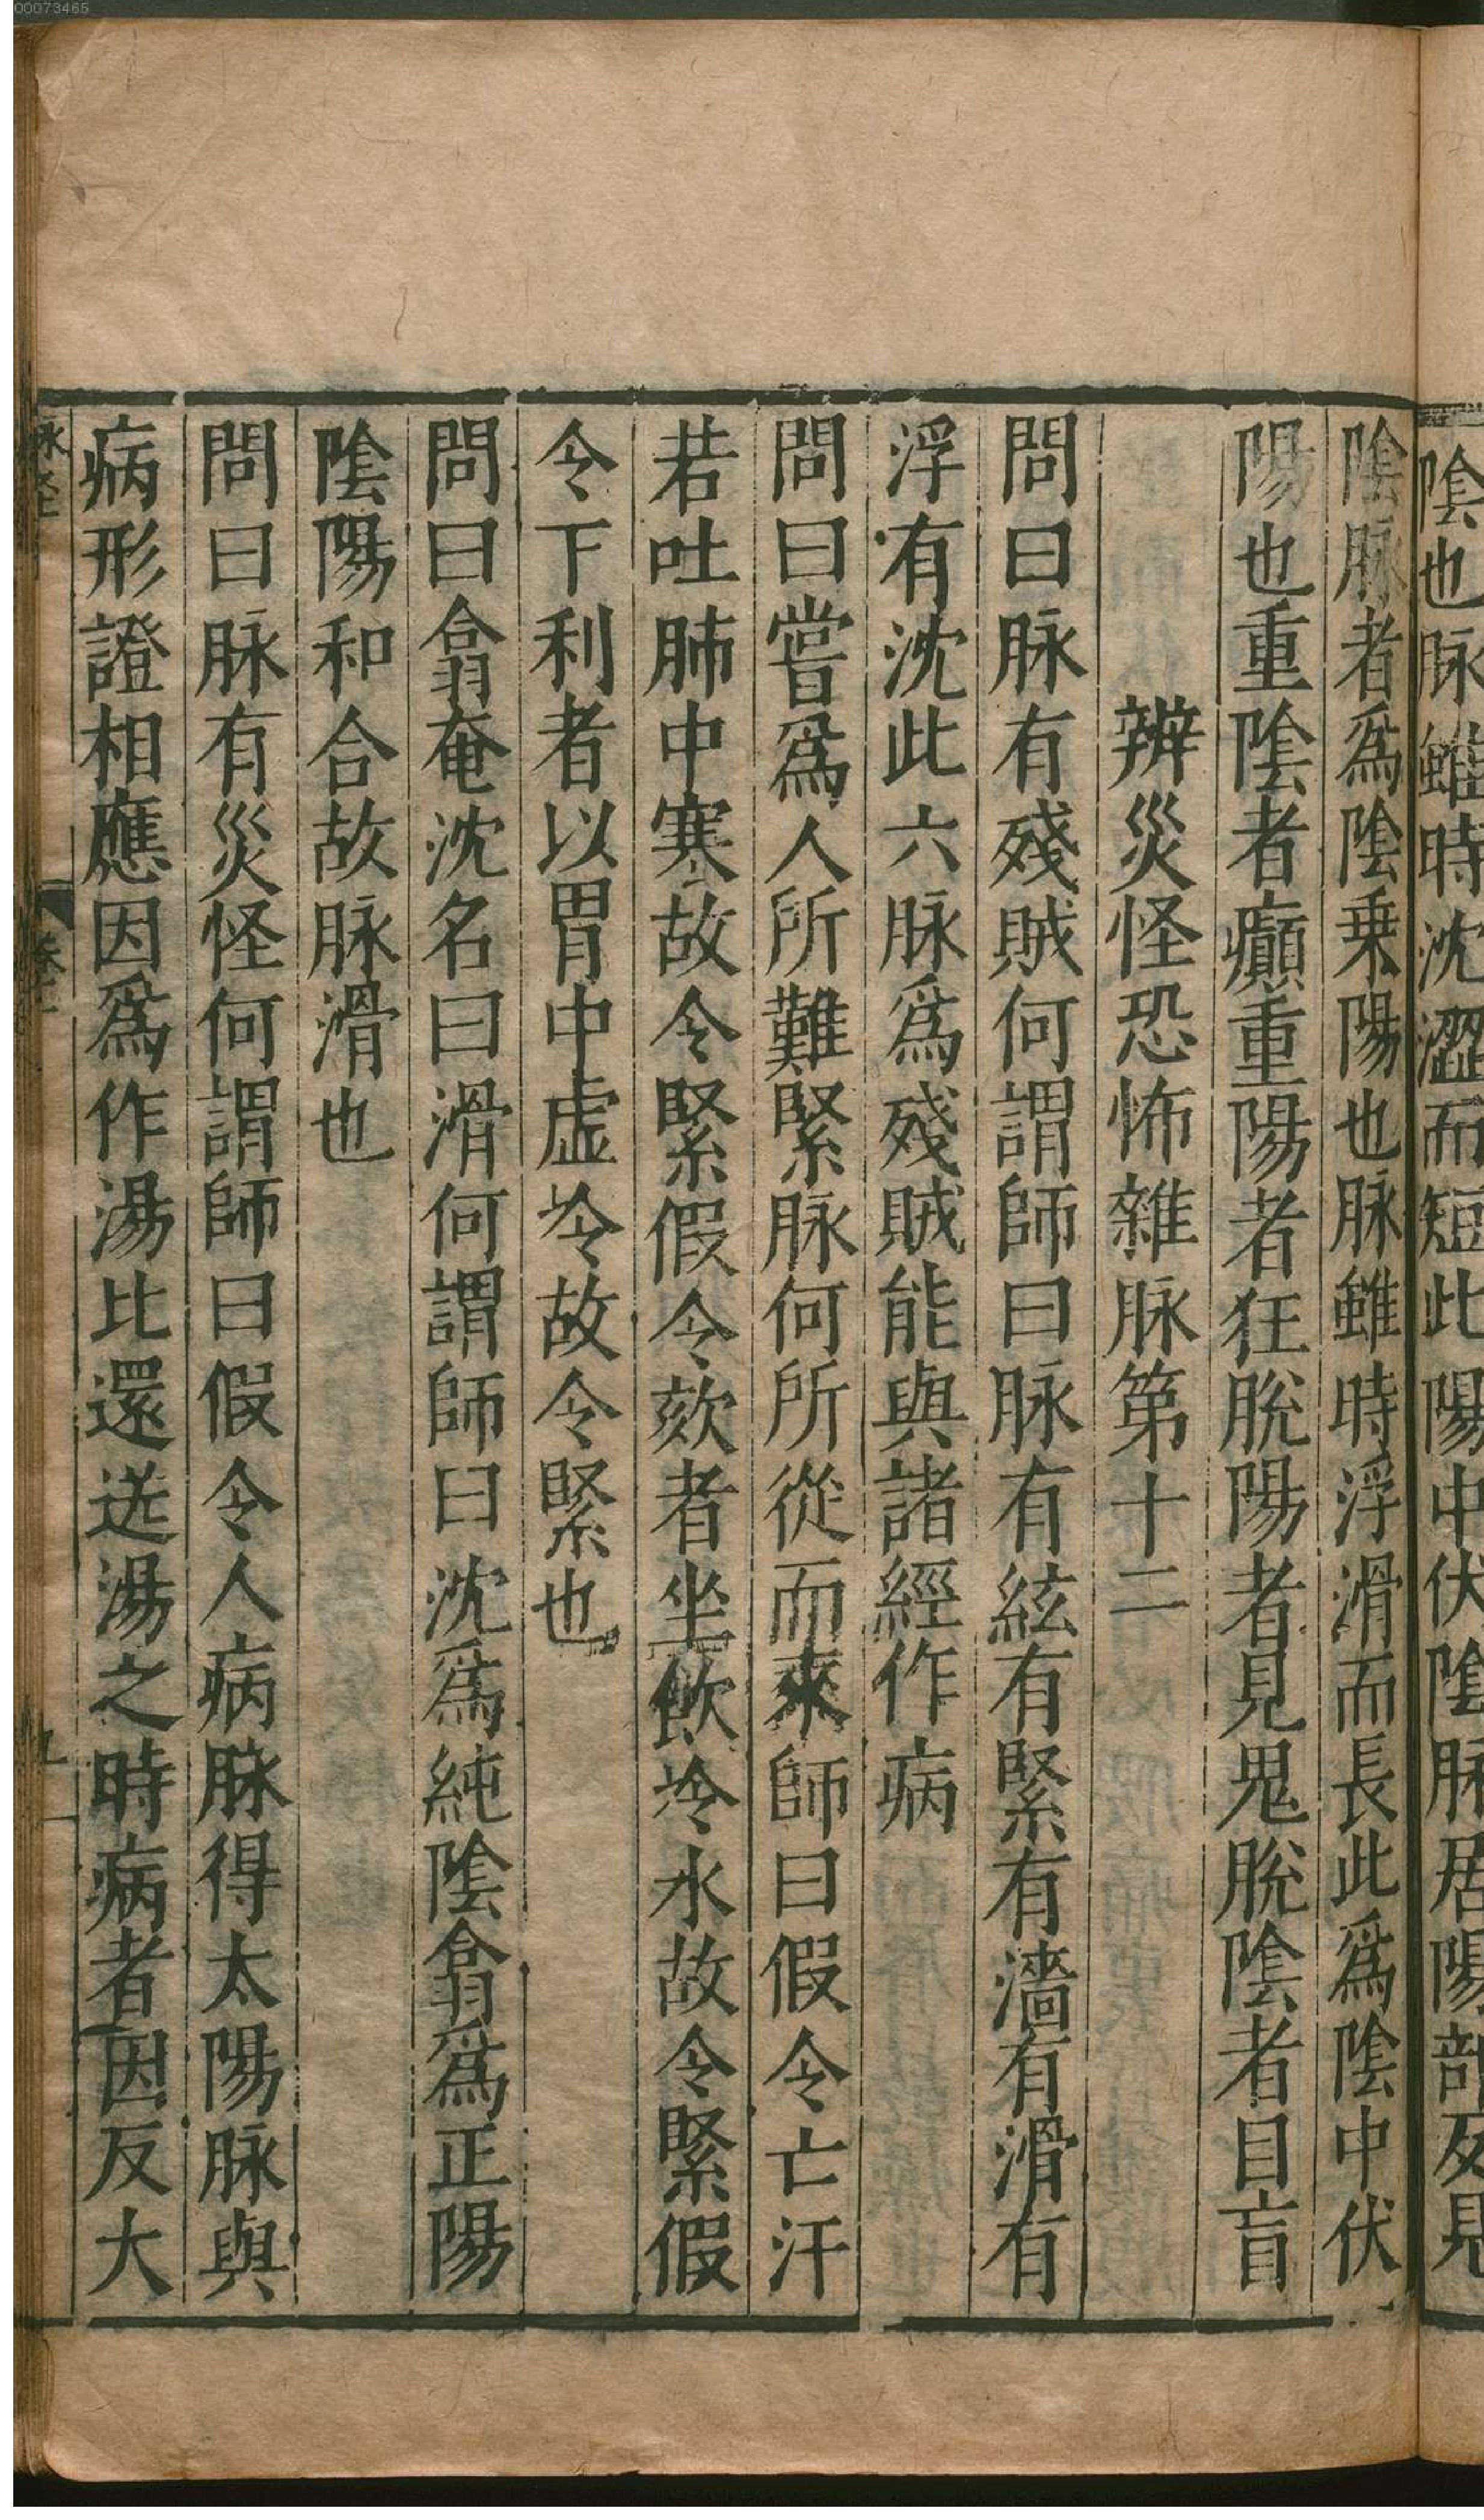 00073465
陰也脉雖時沈澀而短此陽中伏陰脉居陽部反見
陰脉者爲陰乗陽也脉雖時浮滑而長此爲陰中伏
陽也重陰者癲重陽者狂脫陽者見鬼脫陰者目盲
辨災怪恐怖雜脉第十二
問曰脉有殘賊何謂師曰脉有絃有緊有濇有滑有
浮有沈此六脉爲殘賊能與諸經作病
問曰嘗爲人所難緊脉何所從而來師曰假令亡汗
若吐肺中寒故令緊假令欬者坐飲冷水故令緊假
令下利者以胃中虚冷故令緊也
問曰翕奄沈名曰滑何謂師曰沈爲純陰翕爲正陽
陰陽和合故脉滑也
問曰脉有災怪何謂師曰假令人病脉得太陽脉與
病形證相應因爲作湯比還送湯之時病者因反大
脉経 卷 九